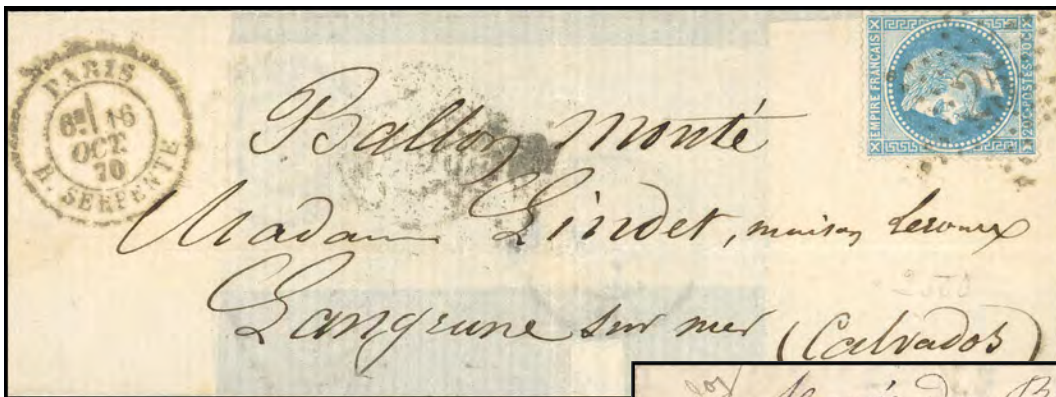 PARIS
6E/ 16
OCT.
70
R. SERPENTE
EMPIRE FRANÇAIS
20 C. POSTES 20 C.
Ballon monté
Madame Lindet, maison Leroux
Langrune sur mer
(Calvados)